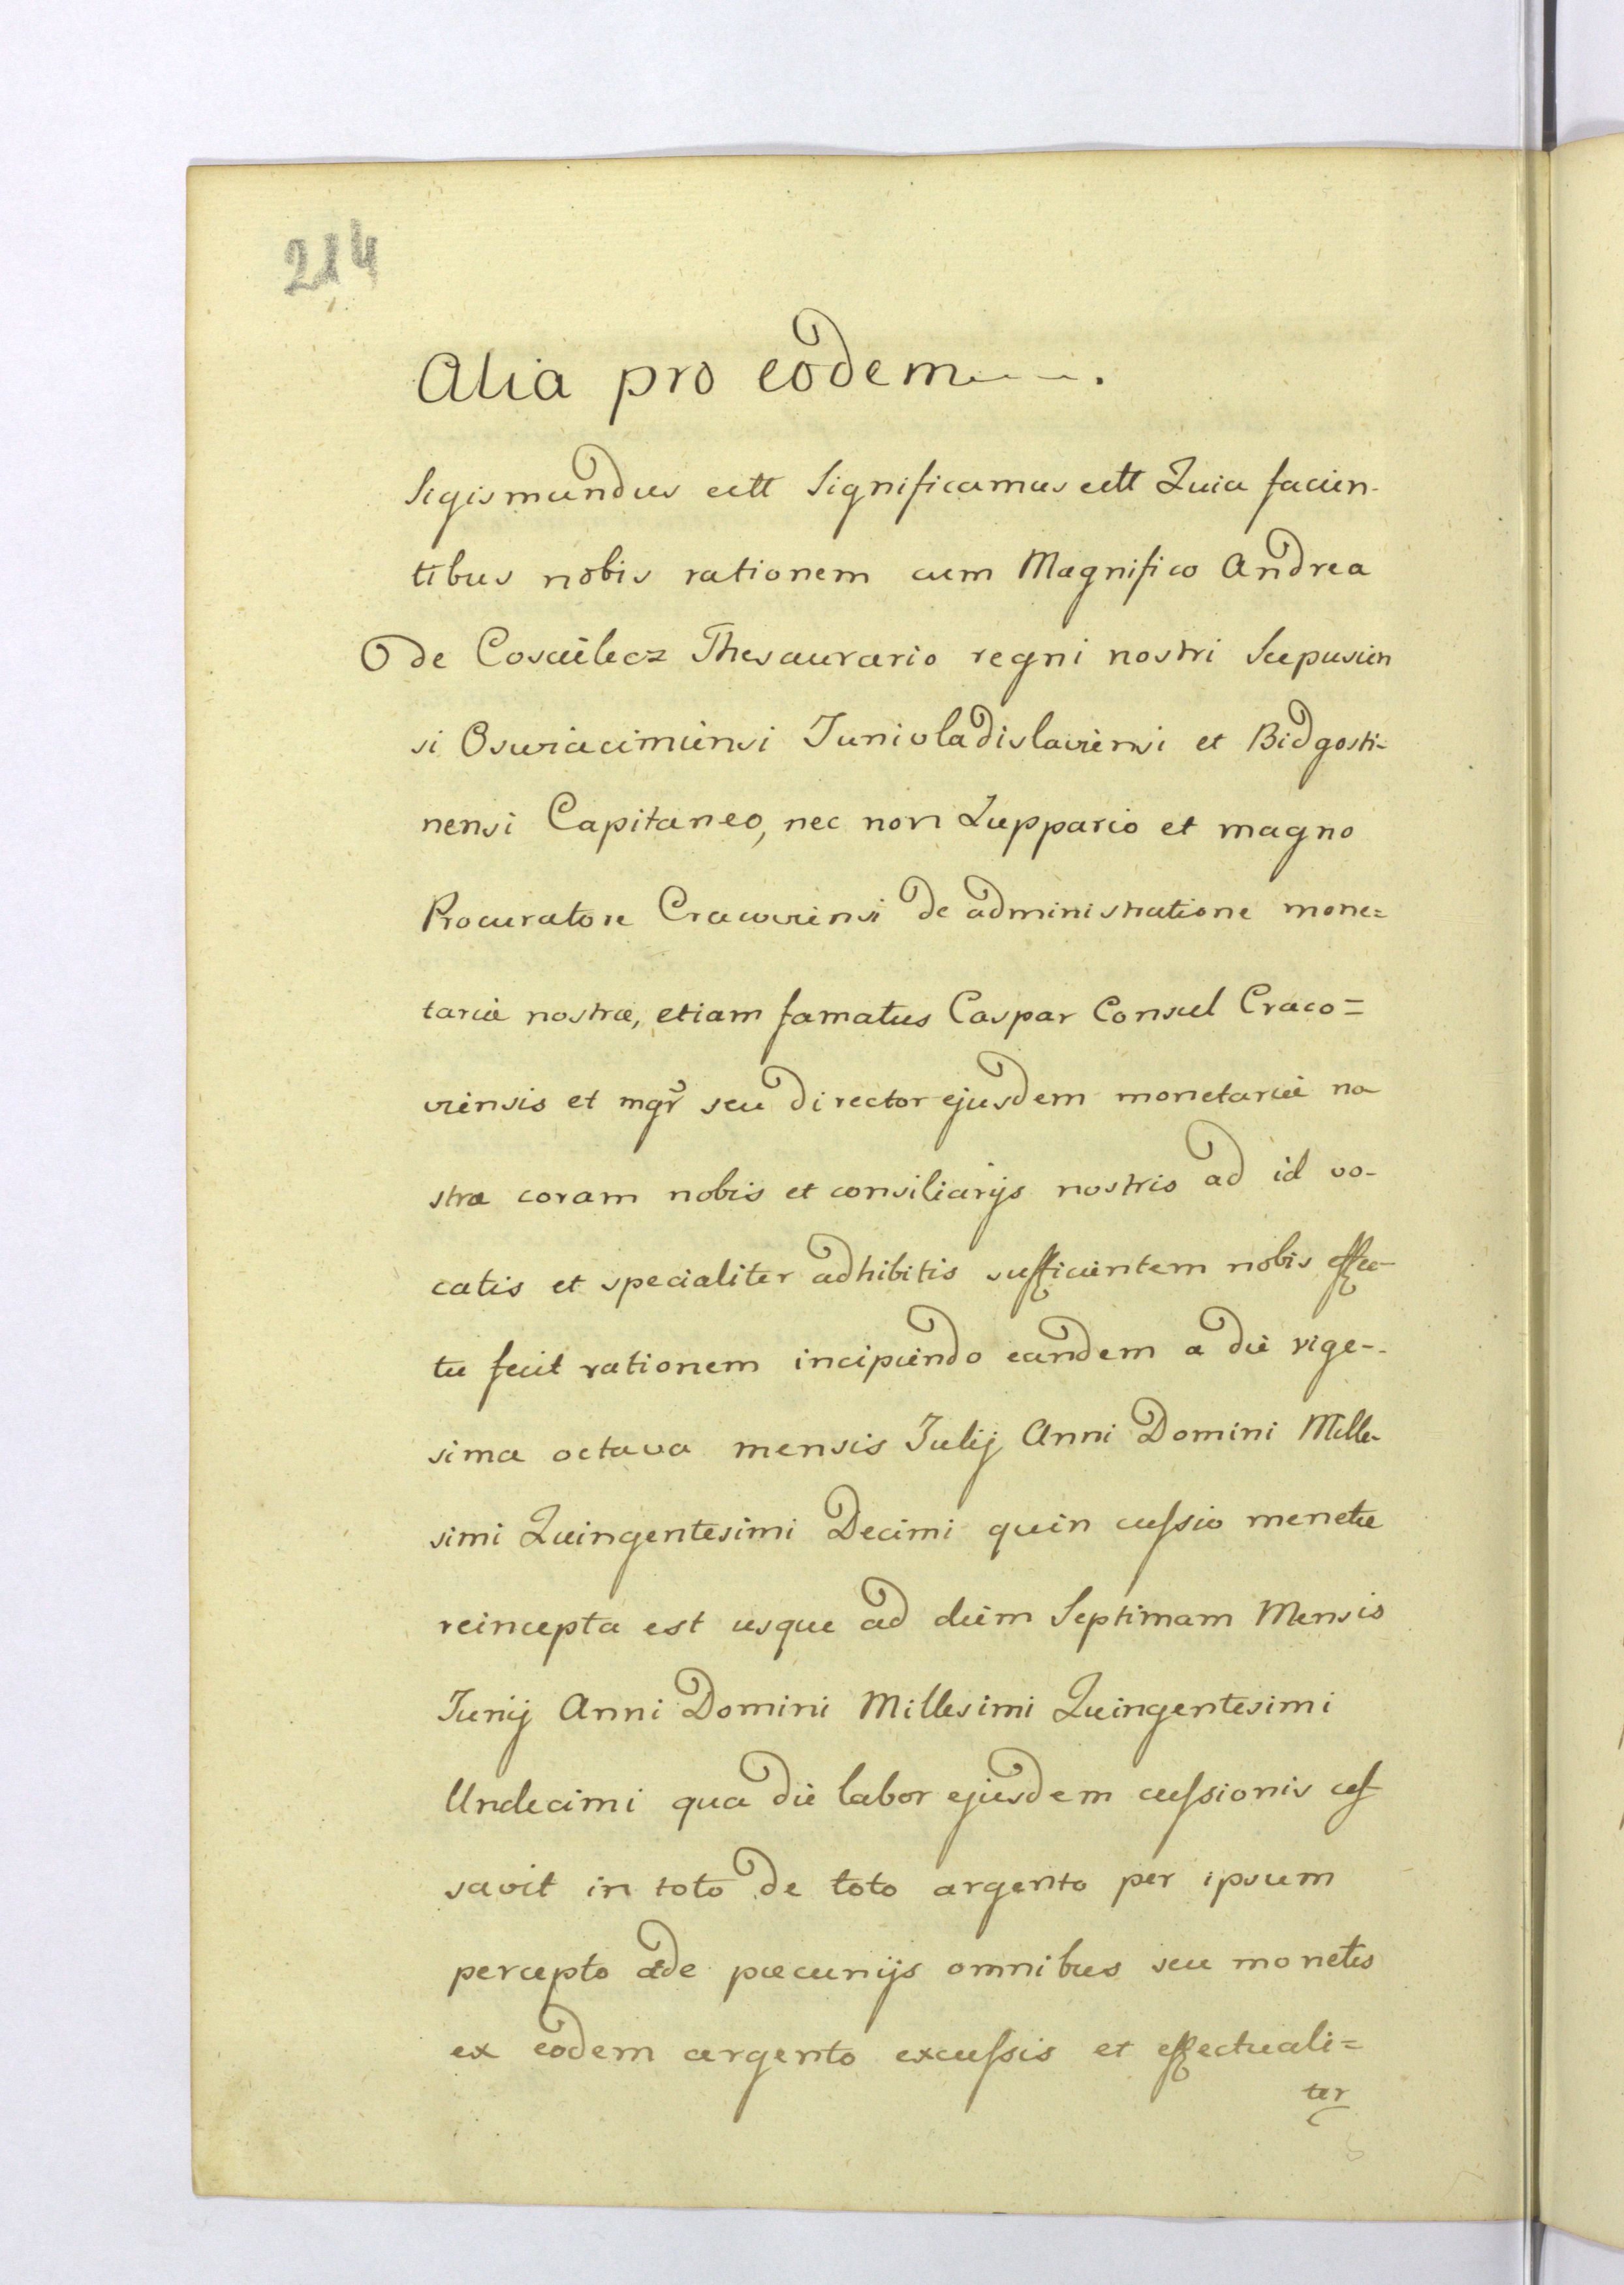 214
Alia pro eodem
Sigismundus ectt Significamus ectt Quia facien-
tibus nobis rationem cum Magnifico Andrea
de Coscielecz Thesaurario regni nostri Scepusien
si Oswiacimiensi Junivladislaviensi et Bidgosti-
nensi Capitaneo, nec non Zuppario et magno
Procuratore Cracoviensi de administratione mone=
tariæ nostræ, etiam famatus Caspar Consul Craco=
viensis et mgr̃ seu director ejusdem monetariæ no
stræ coram nobis et consiliarijs nostris ad id vo-
catis et specialiter adhibitis sufficientem nobis effec-
tu fecit rationem incipiendo eandem a die vige-
sima octava mensis Julij Anni Domini Mille-
simi Quingentesimi Decimi quin cussio menetæ
reincepta est usque ad diem Septimam Mensis
Junij Anni Domini Millesimi Quingentesimi
Undecimi qua die labor ejusdem cussionis ces
savit in toto de toto argento per ipsum
percepto de pæcunijs omnibus seu monetis
ex eodem argento excussis et effectuali=
ter